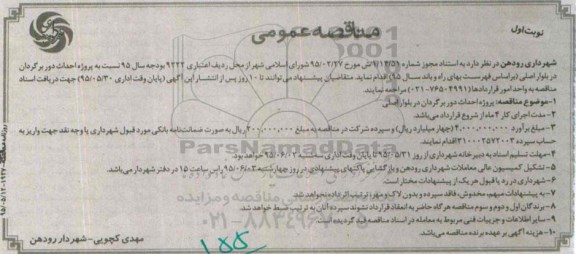 نوبت اول
مناقصه عمومی
شهرداری رودهن در نظر دارد به استناد مجوز شماره مورخ ۹۵/۰۲/۲۷ شورای اسلامی شهر از محل ردیف اعتباری ۹۲۲۲ بودجه سال ۹۵ نسبت به پروژه احداث دور برگردان
در بلوار اصلی (براساس فهرست بهای راه و باند سال ۹۵) اقدام نماید. متقاضیان پیشنهاد می‌توانند تا ۱۰ روز پس از انتشار این آگهی (پایان وقت اداری ۹۵/۰۵/۳۰) جهت دریافت اسناد
مناقصه به واحد امور قراردادها (۷۶۵۰۴۹۹۱-۰۲۱) مراجعه نمایند.
۱-موضوع مناقصه: پروژه احداث دور برگردان در بلوار اصلی
۲- مدت اجرای کار ۴ ماه از شروع قرارداد می‌باشد.
۳- مبلغ برآورد ۴,۰۰۰,۰۰۰,۰۰۰ (چهار میلیارد ریال) و سپرده شرکت در مناقصه به مبلغ ۲۰۰,۰۰۰,۰۰۰ ریال به صورت ضمانتنامه بانکی مورد قبول شهرداری یا وجه نقد جهت واریز به
حساب سپرده ۳۱۰۰۰۲۵۷۲۰۰۳ اقدام نمایند.
۴- مهلت تسلیم اسناد به دبیرخانه شهرداری از روز ۹۵/۰۵/۳۱ تا پایان وقت اداری سه‌شنبه ۹۵/۰۶/۰۲ خواهد بود.
۵- تشکیل کمیسیون عالی معاملات شهرداری رودهن و بازگشایی پاکتهای پیشنهادی در روز چهارشنبه ۹۵/۰۶/۰۳ راس ساعت ۱۵ در دفتر شهردار می‌باشد.
۶- شهرداری در رد یا قبول هر یک از پیشنهادات مختار است.
۷- به پیشنهادات مبهم، مخدوش، فاقد سپرده و بدون لاک و مهر، ترتیب اثر داده نخواهد شد.
۸- برندگان اول و دوم و سوم مناقصه هرگاه حاضر به انعقاد قرارداد نشوند سپرده آنان به ترتیب ضبط خواهد شد.
۹- سایر اطلاعات و جزییات فنی مربوط به معامله در اسناد مناقصه قید گردیده است.
۱۰- هزینه آگهی بر عهده برنده مناقصه می‌باشد.
مهدی کچویی- شهردار رودهن
ParsNamadData
۰۲۱-۸۸۳۴۹۶۷۰-۵
۱۵۵